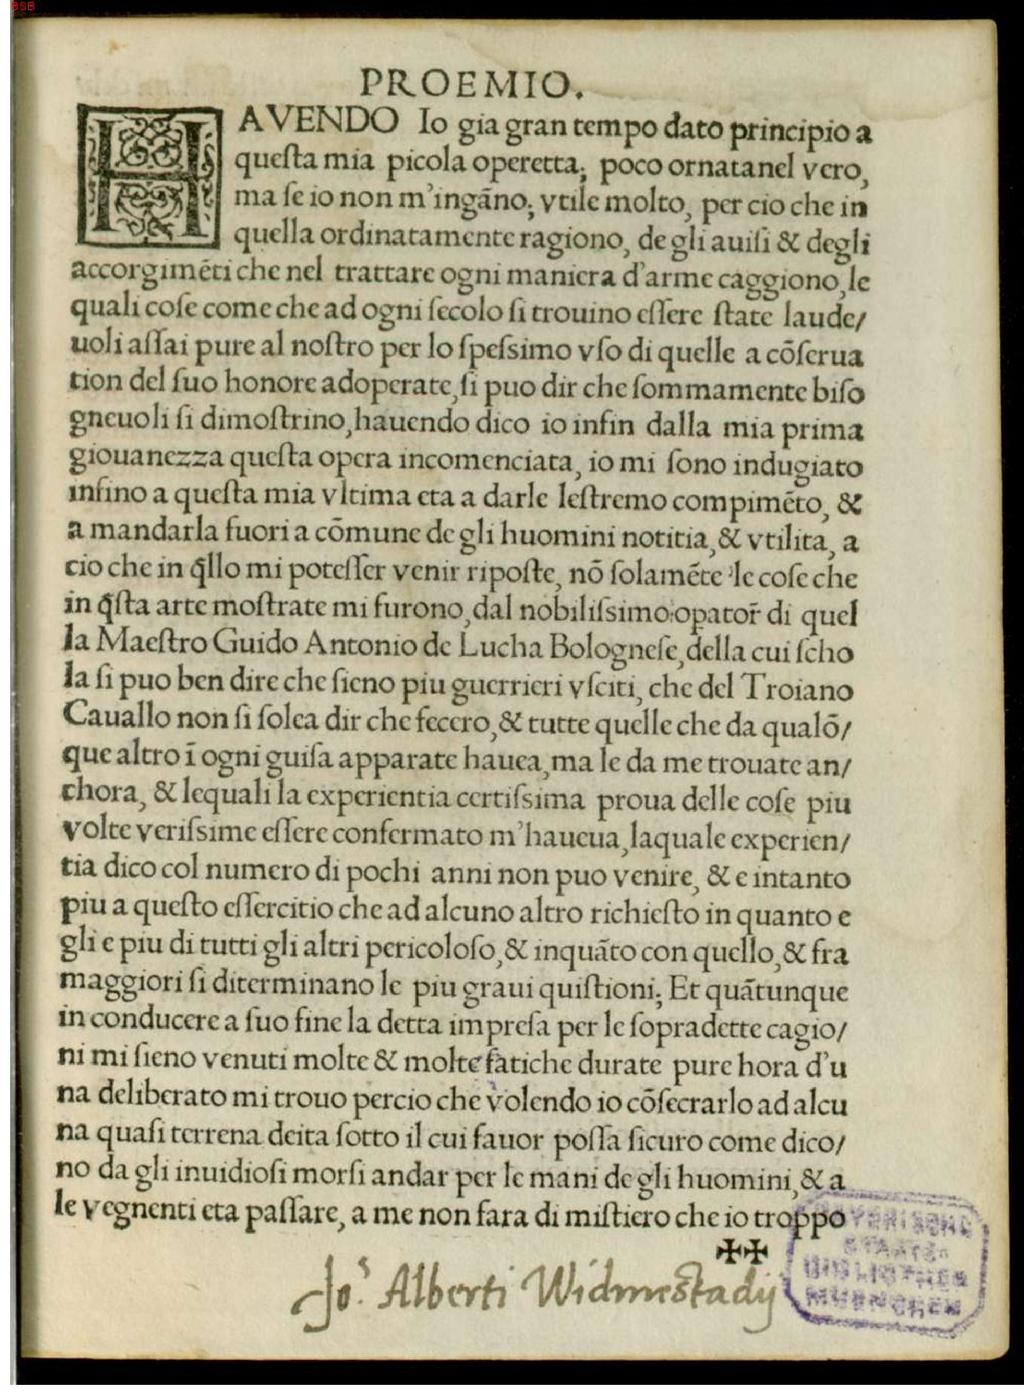 BSB
PROEMIO.
HAVENDO Io gia gran tempo dato principio a
queſta mia picola operetta; poco ornatanel vero,
ma ſe io non m'ingãno; vtile molto, per cio che in
quella ordinatamente ragiono, de gli auiſi & degli
accorgimẽti che nel trattare ogni maniera d'arme caggiono, le
quali coſe come che ad ogni ſecolo ſi trouino eſſere ſtate laude/
uoli aſſai pure al noſtro per lo ſpeſsimo vſo di quelle a cõſerua
tion del ſuo honore adoperate, ſi puo dir che ſommamente biſo
gneuoli ſi dimoſtrino, hauendo dico io infin dalla mia prima
giouanezza queſta opera incomenciata, io mi ſono indugiato
infino a queſta mia vltima eta a darle leſtremo compimẽto, &
a mandarla fuori a cõmune de gli huomini notitia, & vtilita, a
cio che in q̃llo mi poteſſer venir ripoſte, nõ ſolamẽte le coſe che
in q̃ſta arte moſtrate mi furono, dal nobiliſsimo opator̃ di quel
la Maeſtro Guido Antonio de Lucha Bologneſe, della cui ſcho
la ſi puo ben dire che ſieno piu guerrieri vſciti, che del Troiano
Cauallo non ſi ſolea dir che fecero, & tutte quelle che da qualõ/
que altro ĩ ogni guiſa apparate hauea, ma le da me trouate an/
chora, & lequali la experientia certiſsima proua delle coſe piu
volte veriſsime eſſere confermato m'haueua, laquale experien/
tia dico col numero di pochi anni non puo venire, & e intanto
piu a queſto eſſercitio che ad alcuno altro richieſto in quanto e
gli e piu di tutti gli altri pericoloſo, & inquãto con quello, & fra
maggiori ſi diterminano le piu graui quiſtioni; Et quãtunque
in conducere a ſuo fine la detta impreſa per le ſopradette cagio/
ni mi ſieno venuti molte & molte fatiche durate pure hora d'u
na deliberato mi trouo percio che volendo io cõſecrarlo ad alcu
na quaſi terrena deita ſotto il cui fauor poſſa ſicuro come dico/
no da gli inuidioſi morſi andar per le mani de gli huomini, & a
le vegnenti eta paſſare, a me non fara di miſtiero che io troppo
✠✠
Jo.s Alberti Widmestadij
BAYERISCHE
STAATS-
BIBLIOTHEK
MUENCHEN